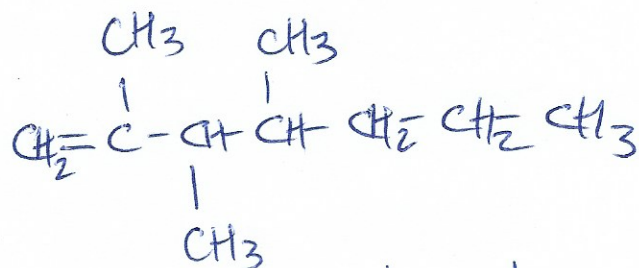 CH3 CH3
CH2=C-CH-CH-CH2-CH2-CH3
CH3